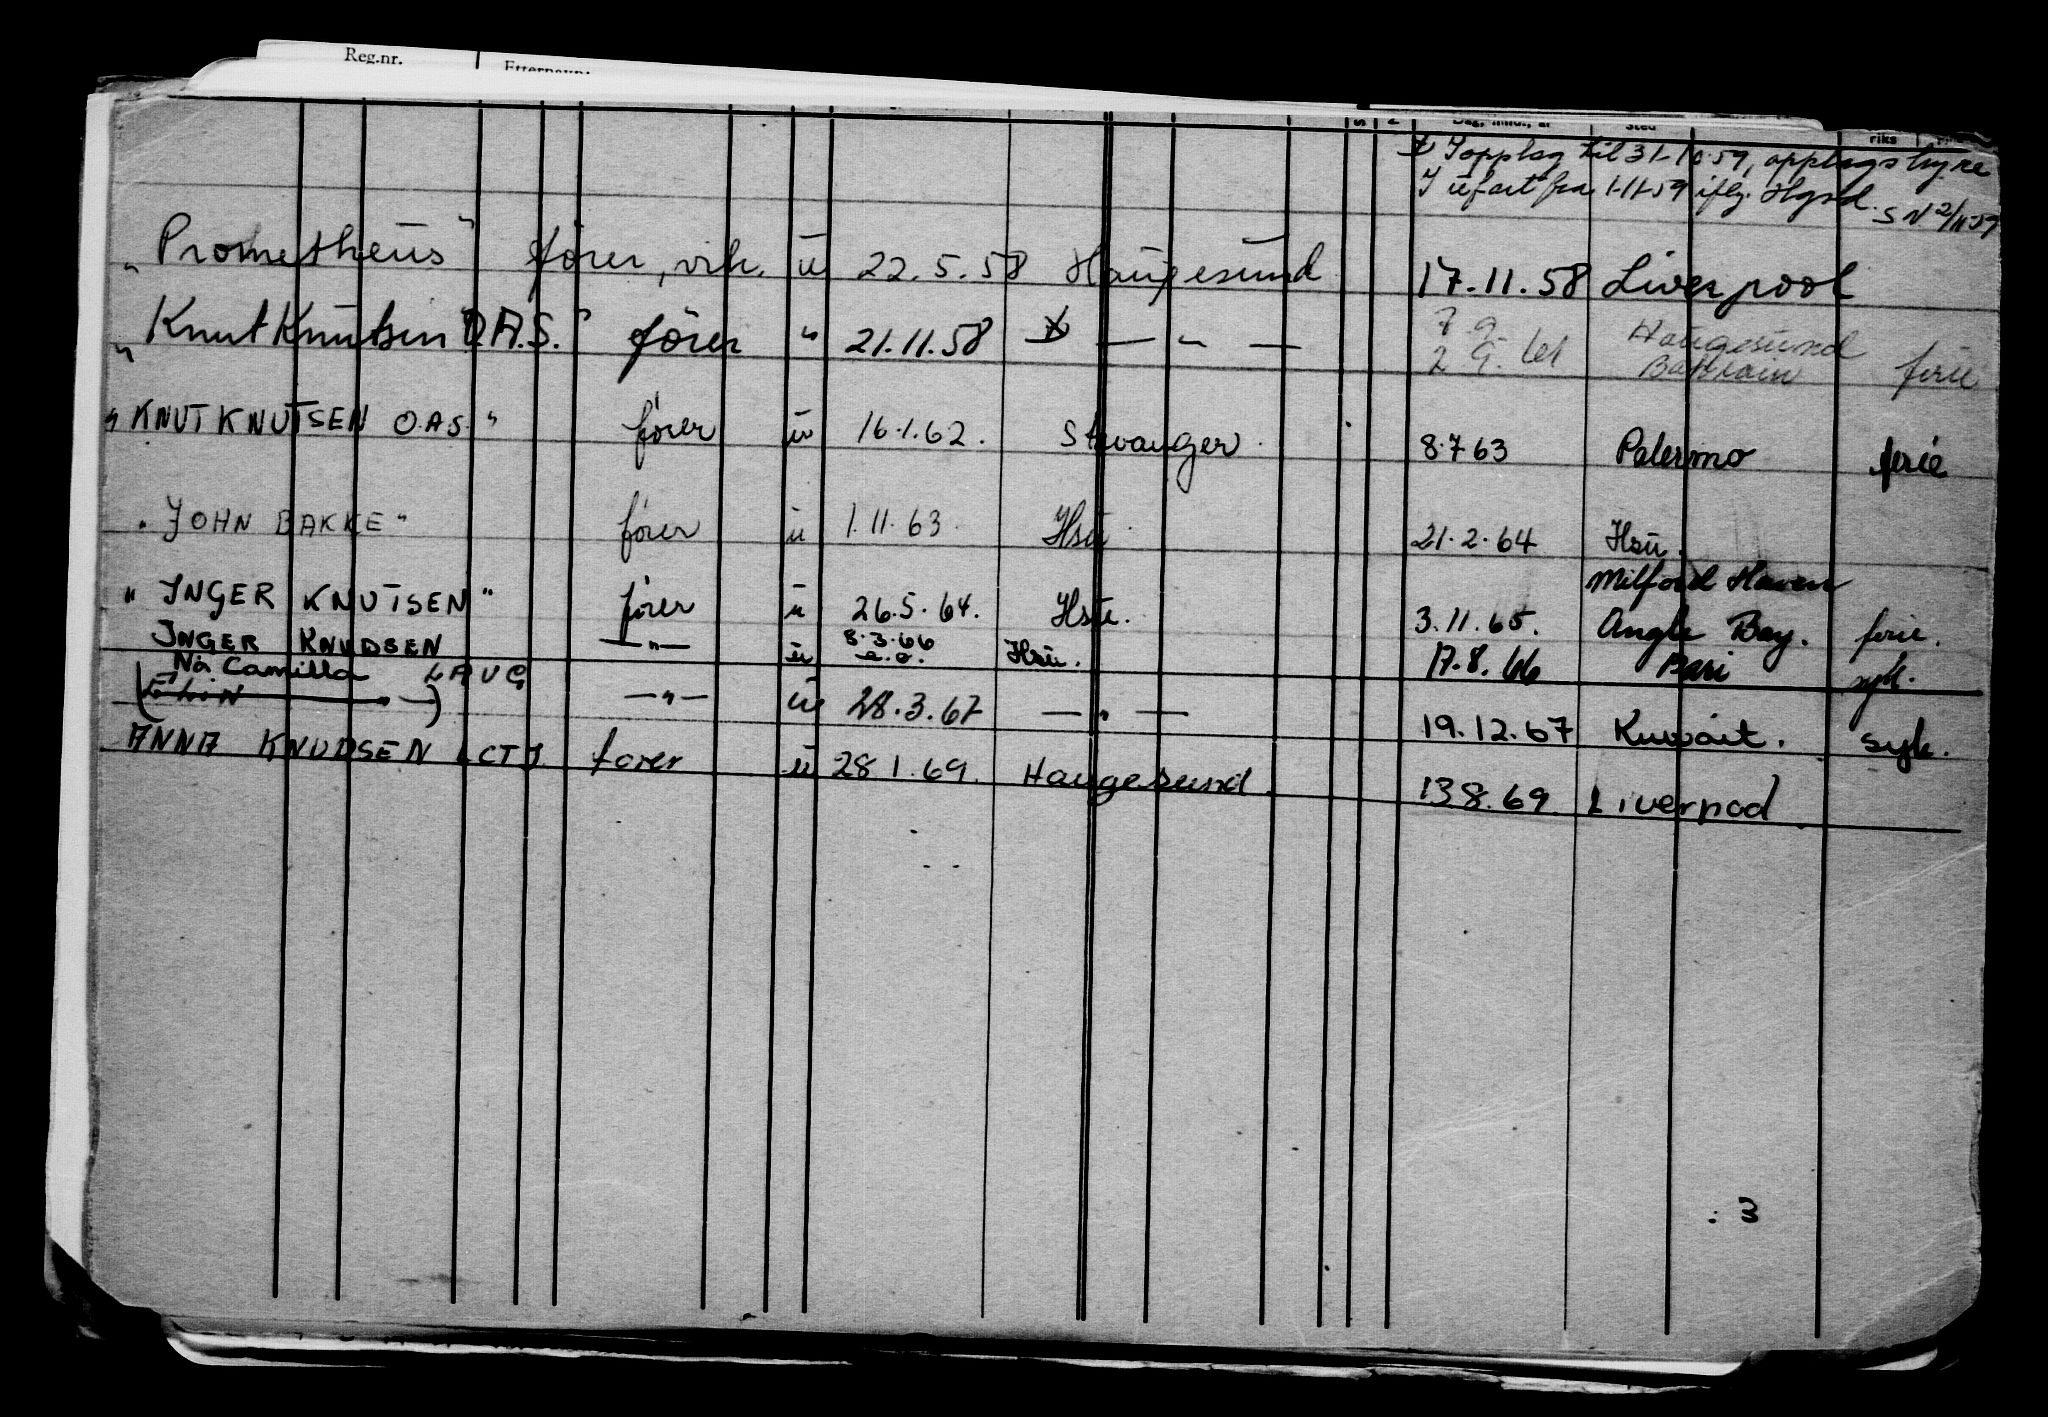 Reg.nr.
Etternavn:
Dag, mnd., år Sted riks
I opplag til 31-10-59, opplagshyre
I utfart fra 1-11-59 iflg. Hgsd. SN 2/11-59
"Prometheus" fører, vik. u 22.5.58 Haugesund 17.11.58 Liverpool
"Knut Knutsen O.A.S." fører " 21.11.58 — " — 7 9 Haugesund
2 9. 61 Bahrain ferie
"KNUT KNUTSEN O.A.S." fører u 16.1.62. Stavanger. 8.7 63 Palermo ferie
"JOHN BAKKE" fører u 1.11.63. Hsu. 21.2.64 Hsu.
Milford Haven
"INGER KNUTSEN" fører u 26.5.64. Hsu. 3.11.65. Angle Bay. ferie.
INGER KNUDSEN —"— u 8.3.66 Hsu. 17.8.66 Bari syk.
Nå Camilla LAUG
—"— u 28.3.67 —"— 19.12.67 Kuwait. syk.
ANNA KNUDSEN LCTJ fører u 28 1.69. Haugesund. 13 8.69. Liverpool.
: 3